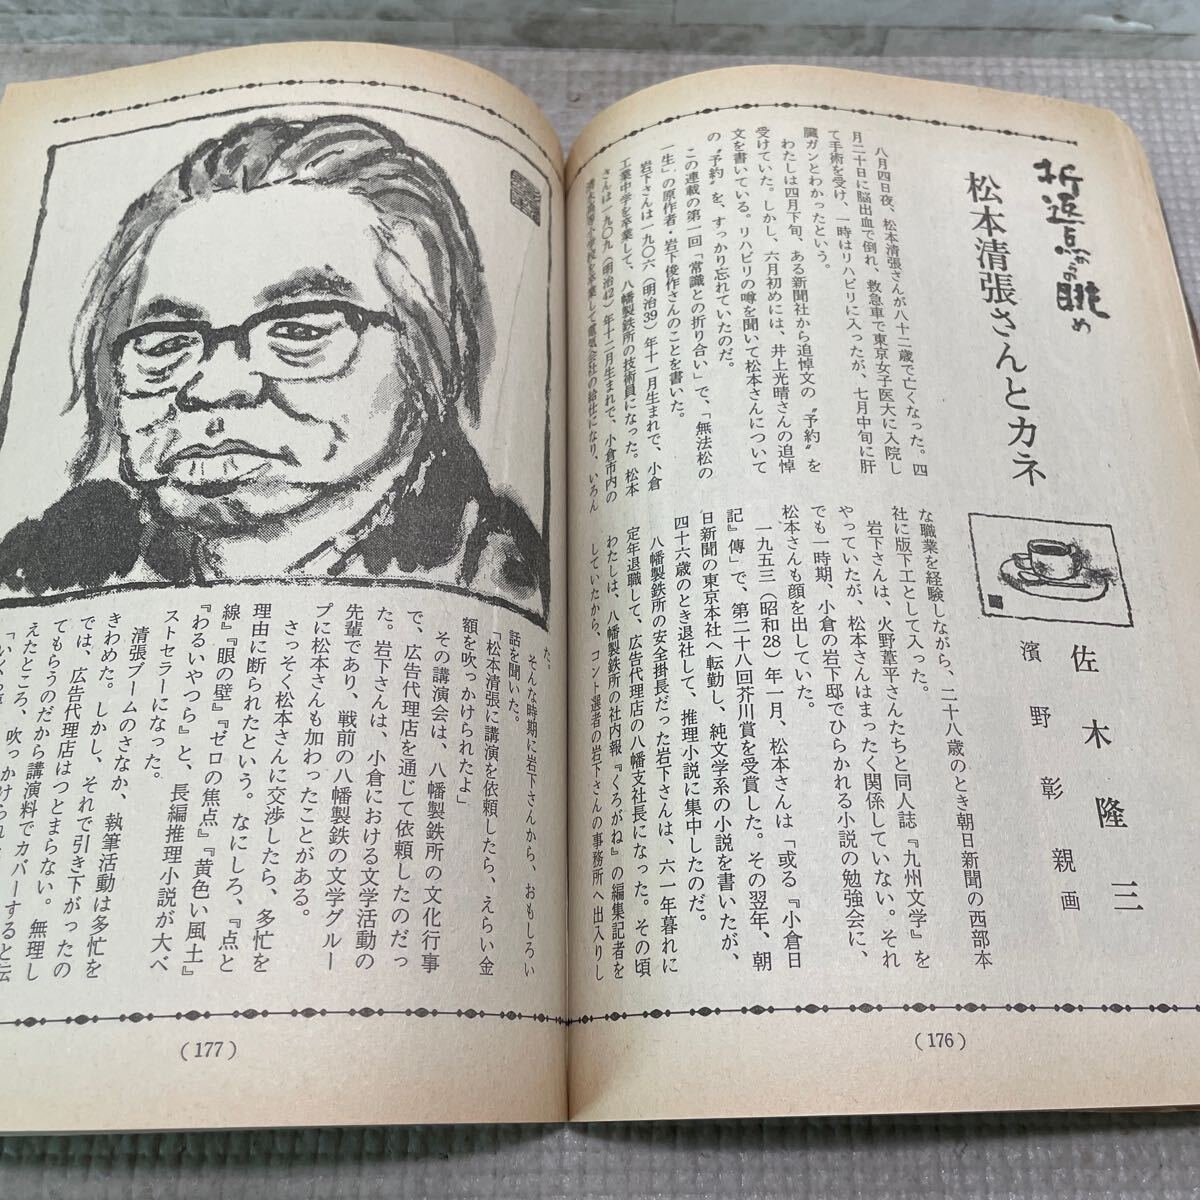 折返点からの眺め
松本清張さんとカネ
佐木隆三
濱野彰親画
八月四日夜、松本清張さんが八十二歳で亡くなった。四
月二十日に脳出血で倒れ、救急車で東京女子医大に入院し
て手術を受け、一時はリハビリに入ったが、七月中旬に肝
臓ガンとわかったという。
わたしは四月下旬、ある新聞社から追悼文の〝予約〟を
受けていた。しかし、六月初めには、井上光晴さんの追悼
文を書いている。リハビリの噂を聞いて松本さんについて
の〝予約〟を、すっかり忘れていたのだ。
この連載の第一回「常識との折り合い」で、「無法松の
一生」の原作者・岩下俊作さんのことを書いた。
岩下さんは一九〇六（明治39）年十一月生まれで、小倉
工業中学を卒業して、八幡製鉄所の技術員になった。松本
さんは一九〇九（明治42）年十二月生まれで、小倉市内の
高等小学校を卒業して電気会社の給仕になり、いろん
な職業を経験しながら、二十八歳のとき朝日新聞の西部本
社に版下工として入った。
岩下さんは、火野葦平さんたちと同人誌『九州文学』を
やっていたが、松本さんはまったく関係していない。それ
でも一時期、小倉の岩下邸でひらかれる小説の勉強会に、
松本さんも顔を出していた。
一九五三（昭和28）年一月、松本さんは「或る『小倉日
記』傳」で、第二十八回芥川賞を受賞した。その翌年、朝
日新聞の東京本社へ転勤し、純文学系の小説を書いたが、
四十六歳のとき退社して、推理小説に集中したのだ。
八幡製鉄所の安全掛長だった岩下さんは、六一年暮れに
定年退職して、広告代理店の八幡支社長になった。その頃
わたしは、八幡製鉄所の社内報『くろがね』の編集記者を
していたから、コント選者の岩下さんの事務所へ出入りし
（176）
た。
そんな時期に岩下さんから、おもしろい
話を聞いた。
「松本清張に講演を依頼したら、えらい金
額を吹っかけられたよ」
その講演会は、八幡製鉄所の文化行事
で、広告代理店を通じて依頼したのだっ
た。岩下さんは、小倉における文学活動の
先輩であり、戦前の八幡製鉄の文学グルー
プに松本さんも加わったことがある。
さっそく松本さんに交渉したら、多忙を
理由に断られたという。なにしろ、『点と
線』『眼の壁』『ゼロの焦点』『黄色い風土』
『わるいやつら』と、長編推理小説が大ベ
ストセラーになった。
清張ブームのさなか、執筆活動は多忙を
きわめた。しかし、それで引き下がったの
では、広告代理店はつとまらない。無理し
てもらうのだから講演料でカバーすると伝
えたところ、吹っかけられ
（177）